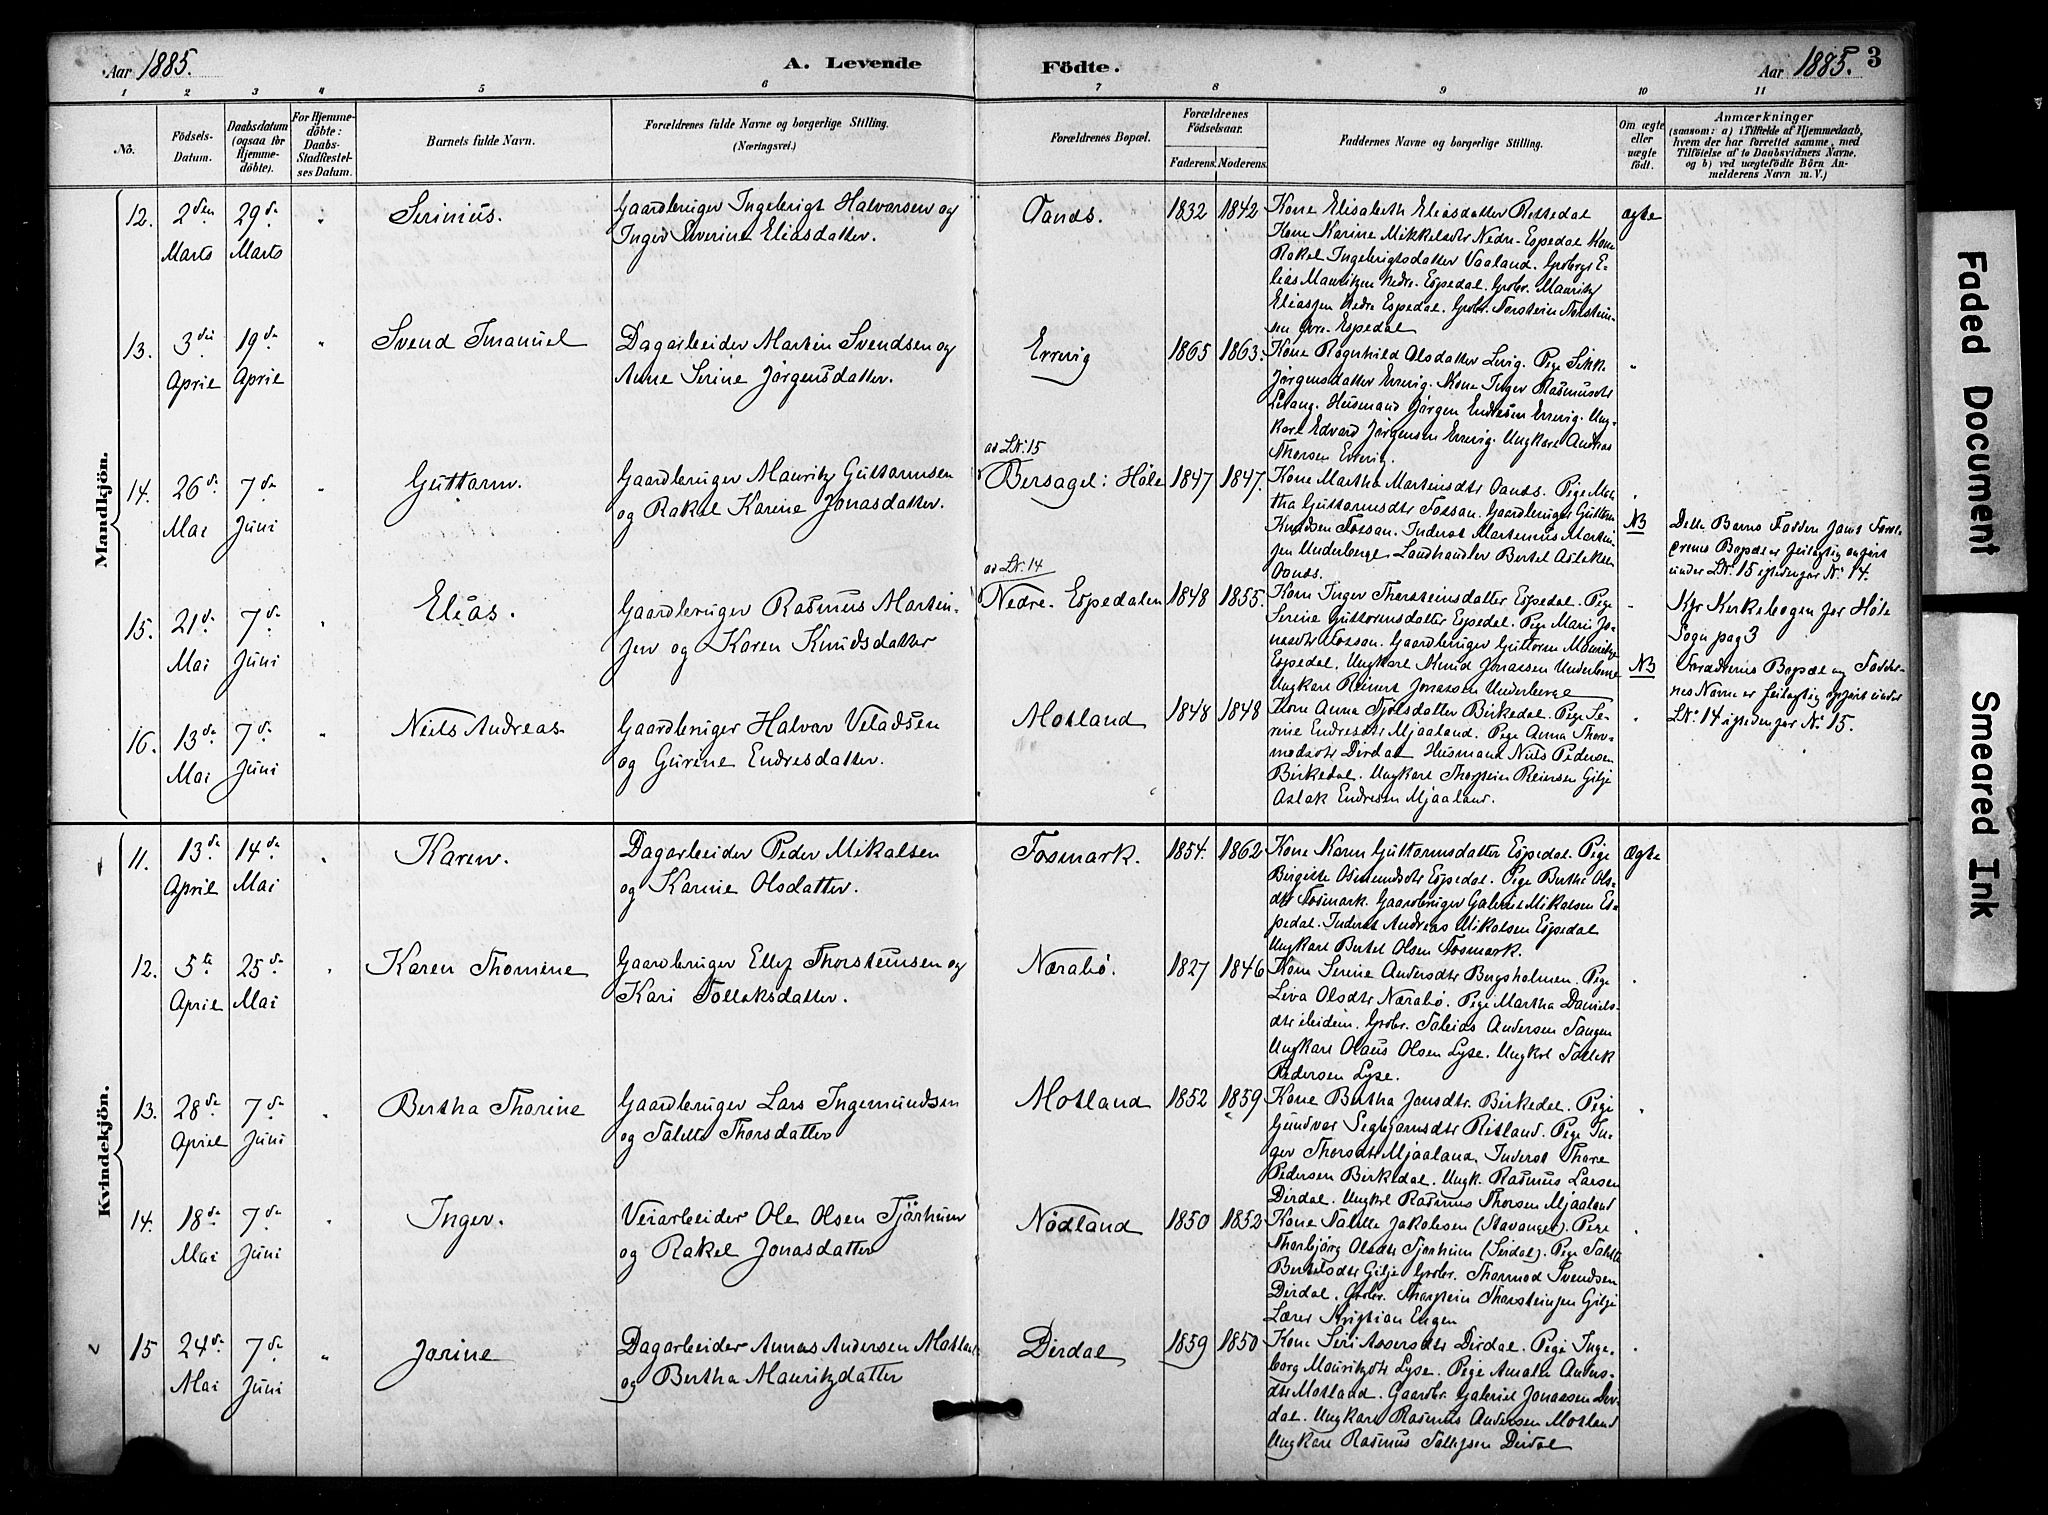 Aar 1885.
A. Levende Födte.
Aar 1885. 3
1 2 3 4 5 6 7 8 9 10 11
No.
Födsels-Datum.
Daabsdatum (ogsaa for Hjemme-döbte).
For Hjemme-döbte: Daabs-Stadfæstel-ses Datum.
Barnets fulde Navn.
Forældrenes fulde Navne og borgerlige Stilling. (Næringsvei.)
Forældrenes Bopæl.
Forældrenes Födselsaar.
Faderens. Moderens.
Faddernes Navne og borgerlige Stilling.
Om ægte eller uægte födt.
Anmærkninger
(saasom: a) i Tilfælde af Hjemmedaab, hvem der har forrettet samme, med Tilföielse af to Daabsvidners Navne, og b) ved uægtefödte Börn An-melderens Navn m. V.)
Mandkjön.
12. 2den Marts 29de Marts " Serinius. Gaardbruger Ingebrigt Halvorsen og
Inger Severine Eliasdatter.
Oands. 1832 1842 Kone Elisabeth Eliasdatter Rettedal ægte
Kone Karine Mikkelsdtr Nedre-Espedal Kone
Rakel Ingebrigtsdatter Vaaland. Grdbrgr E-
lias Mauritzen Nedre Espedal. Grdbr. Mauritz
Eliassen Nedre Espedal. Grdbr. Torstein Torstein-
sen Øvre-Espedal
13. 3die April 19de April " Svend Imanuel Dagarbeider Martin Svendsen og
Anne Serine Jørgensdatter.
Erevig 1865 1863. Kone Ragnhild Olsdatter Pige
Jørgensdatter Erevig. Kone Inger Rasmusdtr
Husmand Jørgen Endresen Erevig. Ung-
karl Edvard Jørgensen Erevig. Ungkarl Andreas
Thorsen Erevig.
ad LN: 15
14. 26de Mai 7de Juni " Guttorm. Gaardbruger Mauritz Guttormsen
og Rakel Karine Jonasdatter.
Bersagel: Höle 1847 1847. Kone Martha Martinsdtr Oands. Pige Mar-
tha Guttormsdtr Fossan. Gaardbruger Guttorm
Knudsen Fossan. Inderst Martinius Martin-
sen Underberge Landhandler Bertel Aslaksen
Oands.
NB Dette Barns Faddere samt Foræl-
drenes Bopæl er feilagtig anført
under LN: 15 istedenfor No: 14.
ad LN: 14
15. 21de Mai 7de Juni " Elias. Gaardbruger Rasmus Martin-
sen og Karen Knudsdatter
Nedre-Espedalen 1848 1855. Kone Inger Thorsteinsdatter Espedal. Pige
Serine Guttormsdatter Espedal. Pige Mari Jo-
nasdtr Fossan. Gaardbruger Guttorm Mauritz.
Espedal. Ungkarl Knud Jonassen Underberge
Ungkarl Reinert Jonassen Underberge
Kfr Kirkebogen for Höle
Sogn pag 3
NB Forældrenes Bopæl og Fadder-
nes Navne er feilagtig opført under
LN: 14 istedenfor No: 15.
16. 13de Mai 7de Juni " Niels Andreas Gaardbruger Halvor Veladsen
og Gurine Endresdatter.
Motland 1848 1848 Kone Anna Birkedal. Pige Se-
rine Endresdtr Mjaaland. Pige Anna Thor-
modsdtr Dirdal Husmand Niels Pedersen
Birkedal. Ungkarl Thorstein Reinsen Gilje
Aslak Endresen Mjaaland.
Kvindekjön.
11. 13de April 14de Mai " Karen. Dagarbeider Peder Mikalsen
og Karine Olsdatter.
Fosmark. 1854. 1862 Kone Karen Guttormsdatter Espedal. Pige Ægte
Bergitte Osmundsdtr Espedal. Pige Berthe Ols-
dtr Fosmark. Gaardbruger Gabriel Mikalsen Es-
pedal. Inderst Andreas Mikalsen Espedal
Ungkarl Bertel Olsen Fosmark.
12. 5te April 25de Mai " Karen Thomine Gaardbruger Ellef Thorsteinsen og
Kari Tollaksdatter.
Nærabø. 1827 1846 Kone Serine Andersdtr Bergsholmen. Pige
Liva Olsdtr Nærabø. Pige Martha Daniels-
dtr ibidem. Grdbr. Tobias Andersen Tangen
Ungkarl Olaus Olsen Lyse. Ungkrl Tollak
Pedersen Lyse.
13. 28de April 7de Juni " Bertha Thorine Gaardbruger Lars Ingemundsen
og Talette Thorsdatter
Motland 1852 1859 Kone Bertha Jonsdtr. Birkedal. Pige
Gundvor Segbjørnsdtr Ritland. Pige In-
ger Thorsdtr Mjaaland. Inderst Thore
Pedersen Birkedal. Ungk. Rasmus Larsen
Dirdal. Ungkrl Rasmus Thorsen Mjaaland
14. 18de Mai 7de Juni " Inger. Veiarbeider Ole Olsen Tjörhum
og Rakel Jonasdatter
Nødland 1850 1852 Kone Talette Jakobsen (Stavanger). Pige
Thorbjørg Olsdtr Tjorhum (Sirdal). Pige Talette
Bertelsdtr Gilje Grdbr. Thormod Svendsen
Dirdal. Grdbr. Thorstein Thorsteinsen Gilje
Lærer Kristian Engen
15 24de Mai 7de Juni " Jorine Dagarbeider Annas Andersen Motland
og Bertha Mauritzdatter
Dirdal 1859 1850 Kone Siri Assersdtr Dirdal. Pige Inge-
borg Mauritzdtr Lyse. Pige Amalie Anders-
dtr Motland. Gaardbr. Gabriel Jonassen Dir-
dal. Ungkarl Rasmus Andersen Motland
Ungkarl Rasmus Tollefsen Dirdal
Faded Document
Smeared Ink